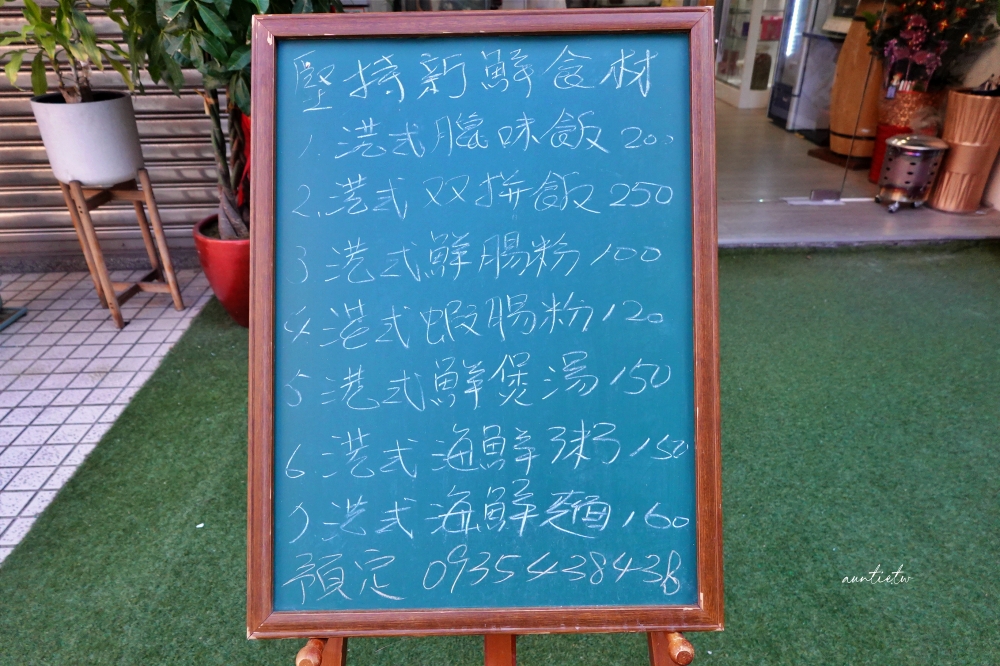 堅持新鮮食材
1.港式臘味飯 200
2.港式双拼飯 250
3 港式鮮腸粉 100
4.港式蝦腸粉 120
5 港式鮮煲湯 150
6 港式海鮮粥 150
7.港式海鮮麵 160
預定 0935438438
auntietw